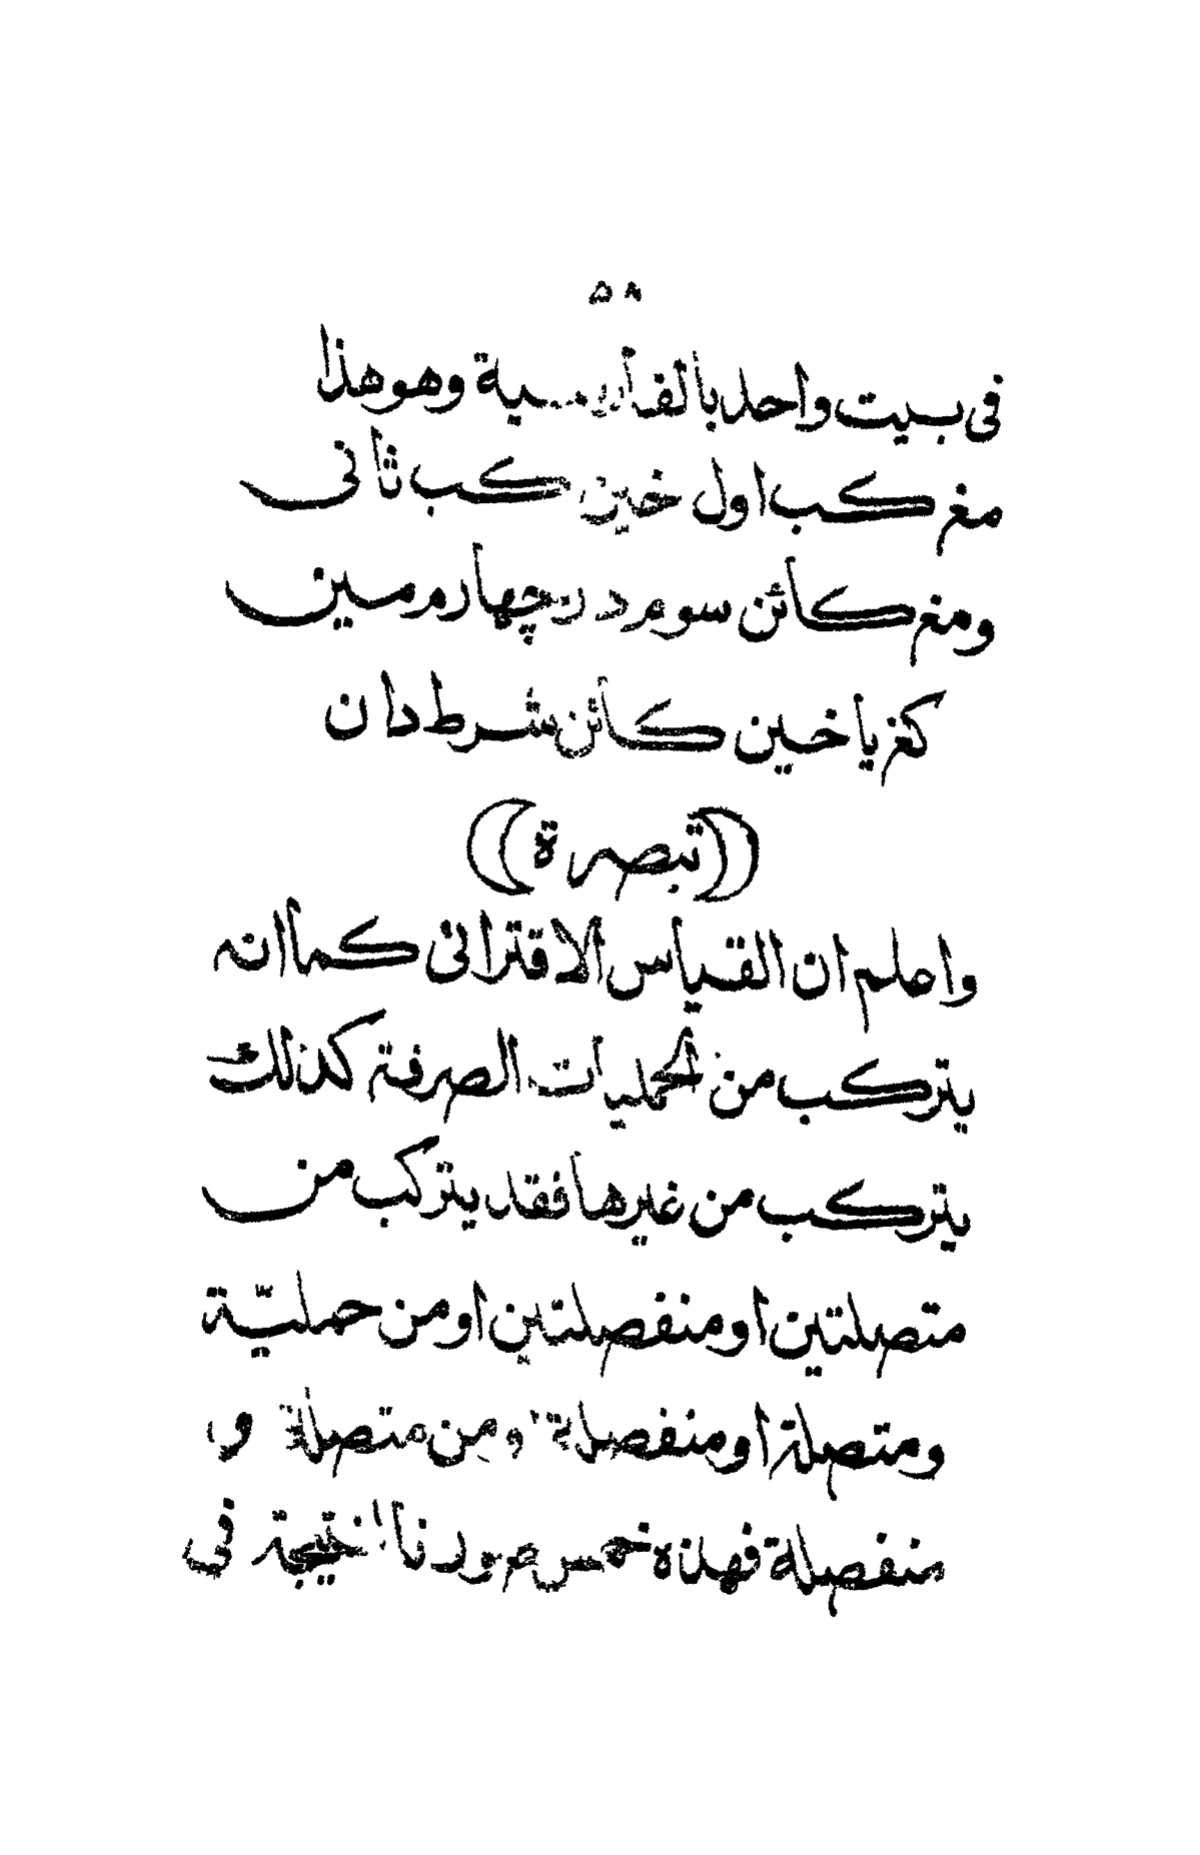 ۵۸
فى بيت واحد بالفارسية وهو هذا
مغ كب اول خين كب ثانى
ومغ كائن سوم در چهارم مين
كغ يا خين كائن شرط دان
((تبصرة))
واعلم ان القياس الاقترانى كما انه
يتركب من الحمليات الصرفة كذلك
يتركب من غيرها فقد يتركب من
متصلتين او منفصلتين او من حمليّة
ومتصلة او منفصلة ومن متصلة و
منفصلة فهذه خمس صور فالنتيجة فى